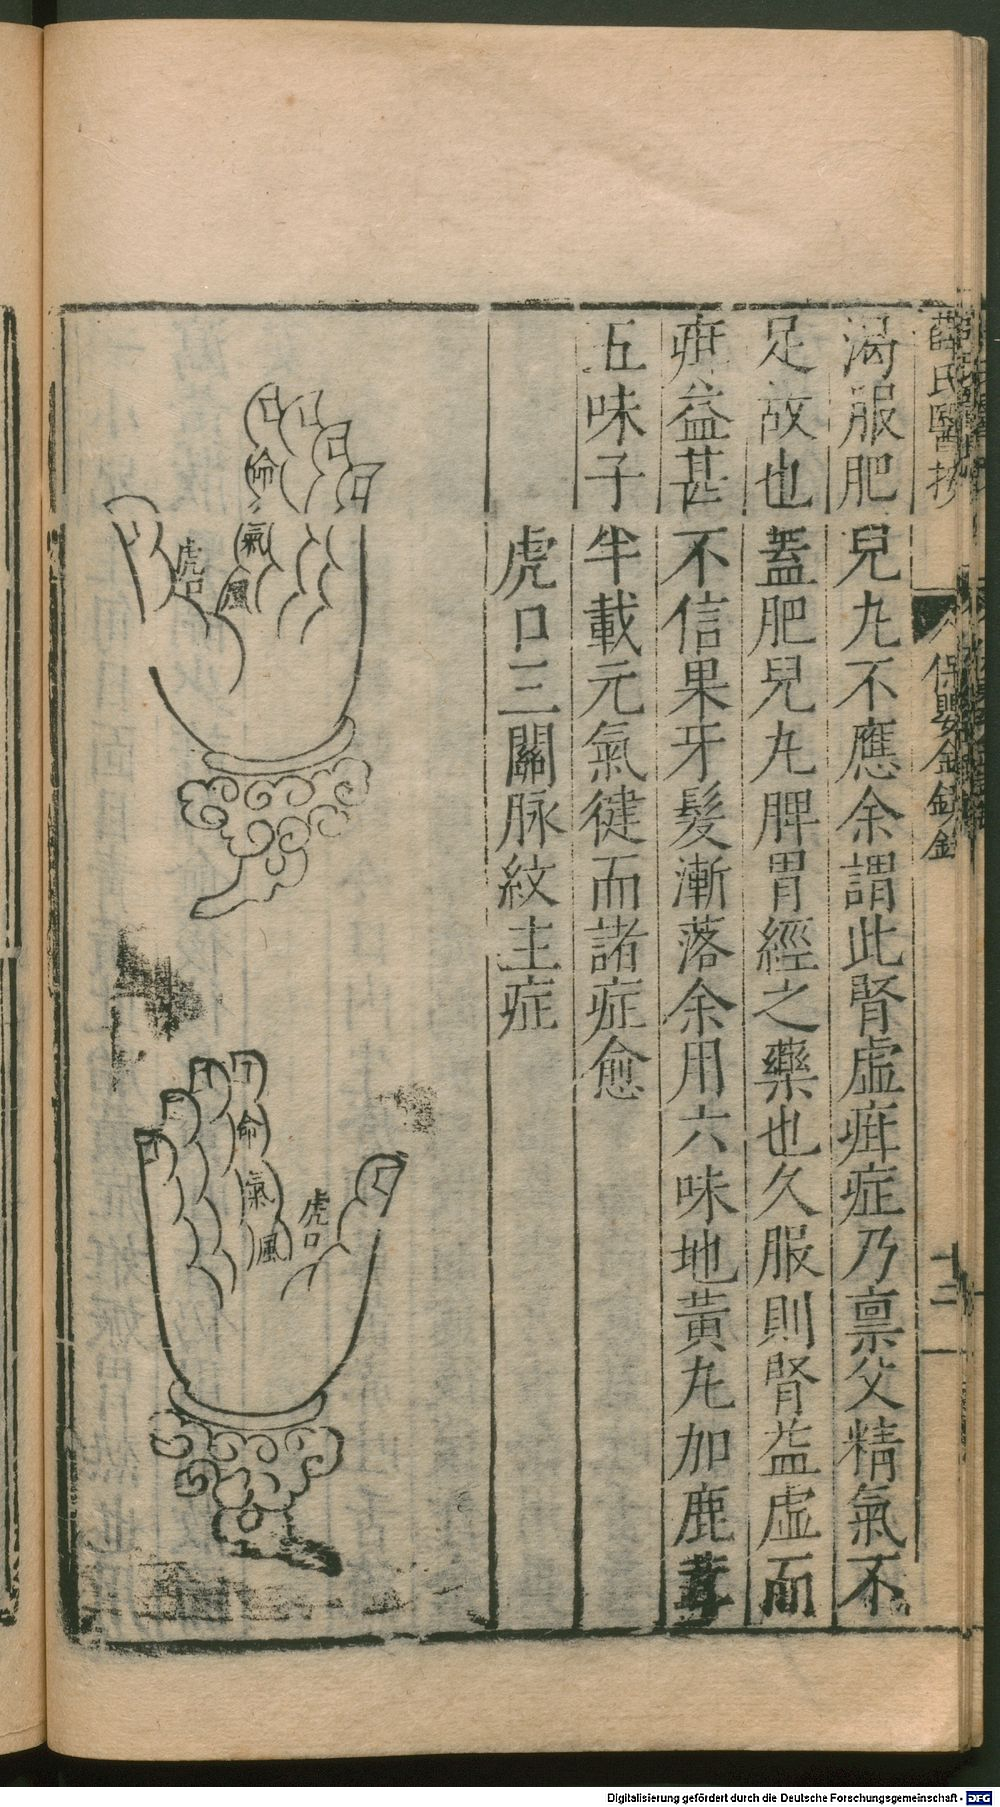 薛氏醫按
保嬰金鏡錄
十二
渴服肥兒丸不應余謂此腎虛疳症乃禀父精氣不
足故也蓋肥兒丸脾胃經之藥也久服則腎益虛而
疳益甚不信果牙髮漸落余用六味地黃丸加鹿茸
五味子半載元氣徤而諸症愈
虎口三關脉紋主症
命
氣
風
虎口
命
氣
風
虎口
Digitalisierung gefördert durch die Deutsche Forschungsgemeinschaft - DFG